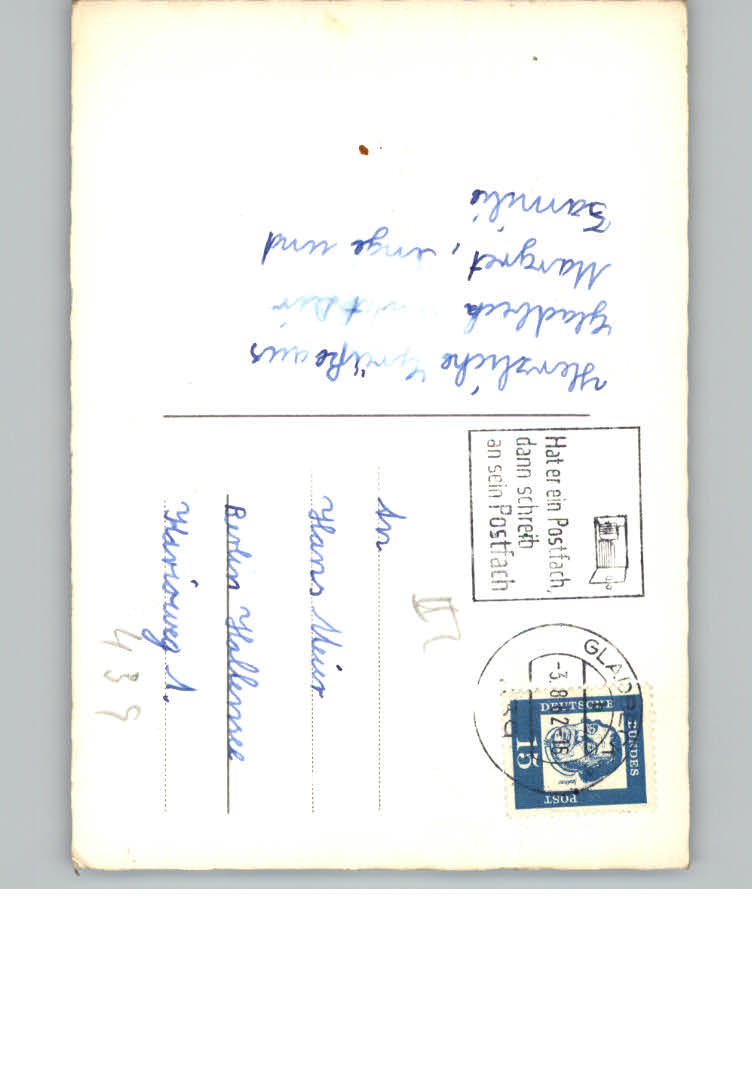 Herzliche Grüße aus
Gladbeck
Margret, Inge und
Familie
Hat er ein Postfach,
dann schreib
an sein Postfach
GLADBECK
-3.8.62-16
DEUTSCHE
BUNDES
POST
15
An
Hans Meier
Berlin Hallensee
1.
439